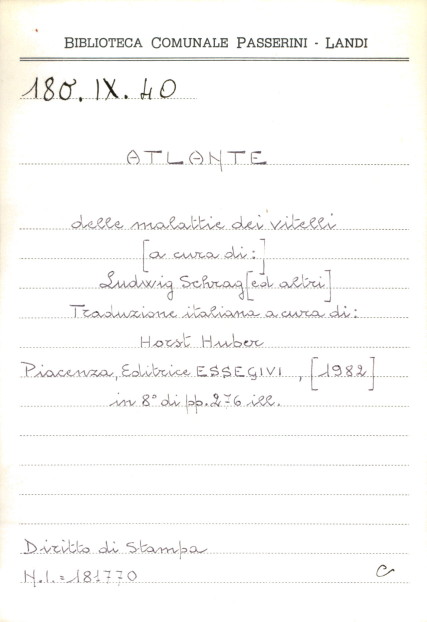 BIBLIOTECA COMUNALE PASSERINI - LANDI
180.IX.40
ATLANTE
delle malattie dei vitelli
[a cura di:]
Ludwig Schrag [ed altri]
Traduzione italiana a cura di:
Horst Huber
Piacenza, Editrice ESSEGIVI, [1982]
in 8° di pp. 276 ill.
Diritto di Stampa
N.I.=181770
C